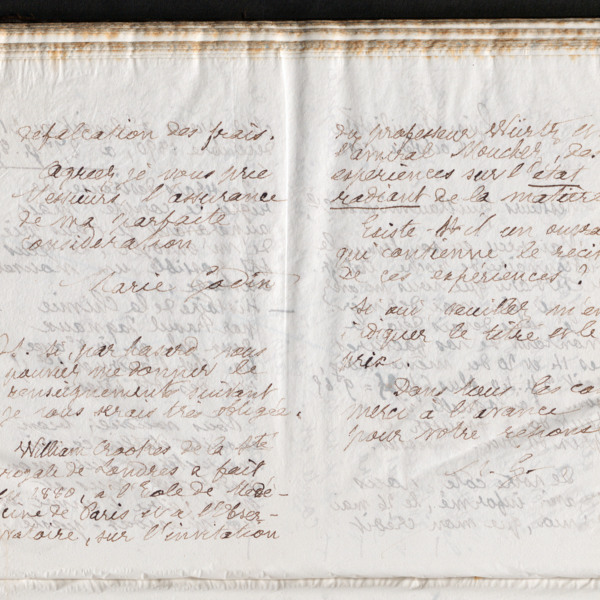 défalcation des frais.
Agréez je vous prie
Messieurs l'assurance
de ma parfaite
considération
Marie Godin
P.S. Si par hasard vous
pouviez me donner le
renseignement suivant
je vous serais très obligée.
William Crookes de la Sté
royale de Londres a fait
en 1880, à l'Ecole de Méde-
cine de Paris et à l'Obser-
vatoire, sur l'invitation
du professeur Würtz et
l'amiral Mouchez, des
expériences sur l'état
radiant de la matière
Existe-t-il un ouvra
qui contienne le récit
de ces expériences ?
Si oui veuillez m'en
diquer le titre et le
prix.
Dans tous les ca
merci à l'avance
pour votre réponse